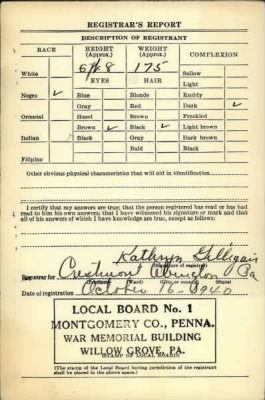 REGISTRAR'S REPORT
DESCRIPTION OF REGISTRANT
RACE HEIGHT (Approx.) WEIGHT (Approx.) COMPLEXION
White 175 Sallow
EYES HAIR Light
Negro ✓ Blue Blonde Ruddy
Gray Red Dark ✓
Oriental Hazel Brown Freckled
Brown ✓ Black ✓ Light brown
Indian Black Gray Dark brown
Bald Black
Filipino
Other obvious physical characteristics that will aid in identification
I certify that my answers are true; that the person registered has read or has had read to him his own answers; that I have witnessed his signature or mark and that all of his answers of which I have knowledge are true, except as follows:
Kathryn Gilligan
(Signature of registrar)
Registrar for Crestmont Abington Pa
(Precinct) (Ward) (City or county) (State)
Date of registration October 16-1940
LOCAL BOARD No. 1
MONTGOMERY CO., PENNA.
WAR MEMORIAL BUILDING
WILLOW GROVE, PA.
(STAMP OF LOCAL BOARD)
(The stamp of the Local Board having jurisdiction of the registrant shall be placed in the above space.)